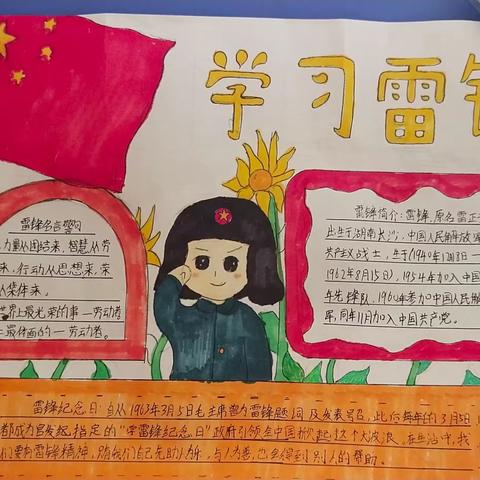 学习雷锋
雷锋名言警句
力量从团结来，智慧从劳
来，行动从思想来，荣
从集体来。
世界上最光荣的事—劳动者
上最体面的—劳动者。
雷锋简介：雷锋，原名雷正
出生于湖南长沙，中国人民解放
共产主义战士，生于(1940年12月18日—
1962年8月15日)，1954年加入中国
年先锋队，1960年参加中国人民解
军，同年11月加入中国共产党。
雷锋纪念日：自从1963年3月5日毛主席为雷锋题词及发表号召，此后每年的3月5日
都成为官发起指定的“学雷锋纪念日”政府引领全中国掀起这个大波浪。在生活中，我
们要有雷锋精神，随我们自己先助人为乐，与人为善，也会得到别人的帮助。